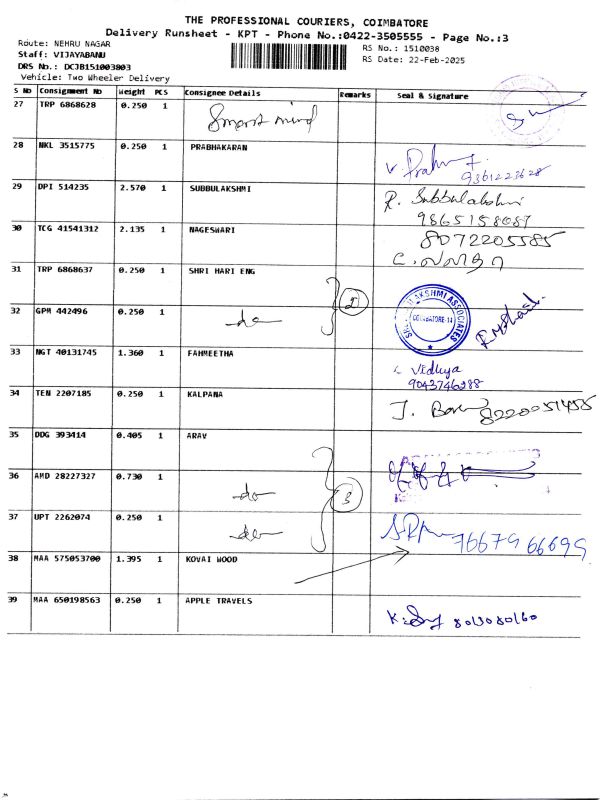 THE PROFESSIONAL COURIERS, COIMBATORE
Delivery Runsheet - KPT - Phone No.:0422-3505555 - Page No.:3
Route: NEHRU NAGAR
Staff: VIJAYABANU
DRS No.: DCJB151003803
Vehicle: Two Wheeler Delivery
RS No.: 1510038
RS Date: 22-Feb-2025
S No Consignment No Weight PCS Consignee Details Remarks Seal & Signature
27 TRP 6868628 0.250 1 Smart mind
28 NKL 3515775 0.250 1 PRABHAKARAN
9361223628
29 DPI 514235 2.570 1 SUBBULAKSHMI R. Subbulakshmi
9865158087
30 TCG 41541312 2.135 1 NAGESWARI 8072205585
31 TRP 6868637 0.250 1 SHRI HARI ENG
32 GPM 442496 0.250 1 do 2 LAKSHMI ASSOCIATES COIMBATORE-14
33 NGT 40131745 1.360 1 FAHMEETHA Vidhya
9043746288
34 TEN 2207185 0.250 1 KALPANA 8220051455
35 DDG 393414 0.405 1 ARAV
36 AMD 28227327 0.730 1 do 3
37 UPT 2262074 0.250 1 do 7667966699
38 MAA 575053700 1.395 1 KOVAI WOOD
39 MAA 650198563 0.250 1 APPLE TRAVELS